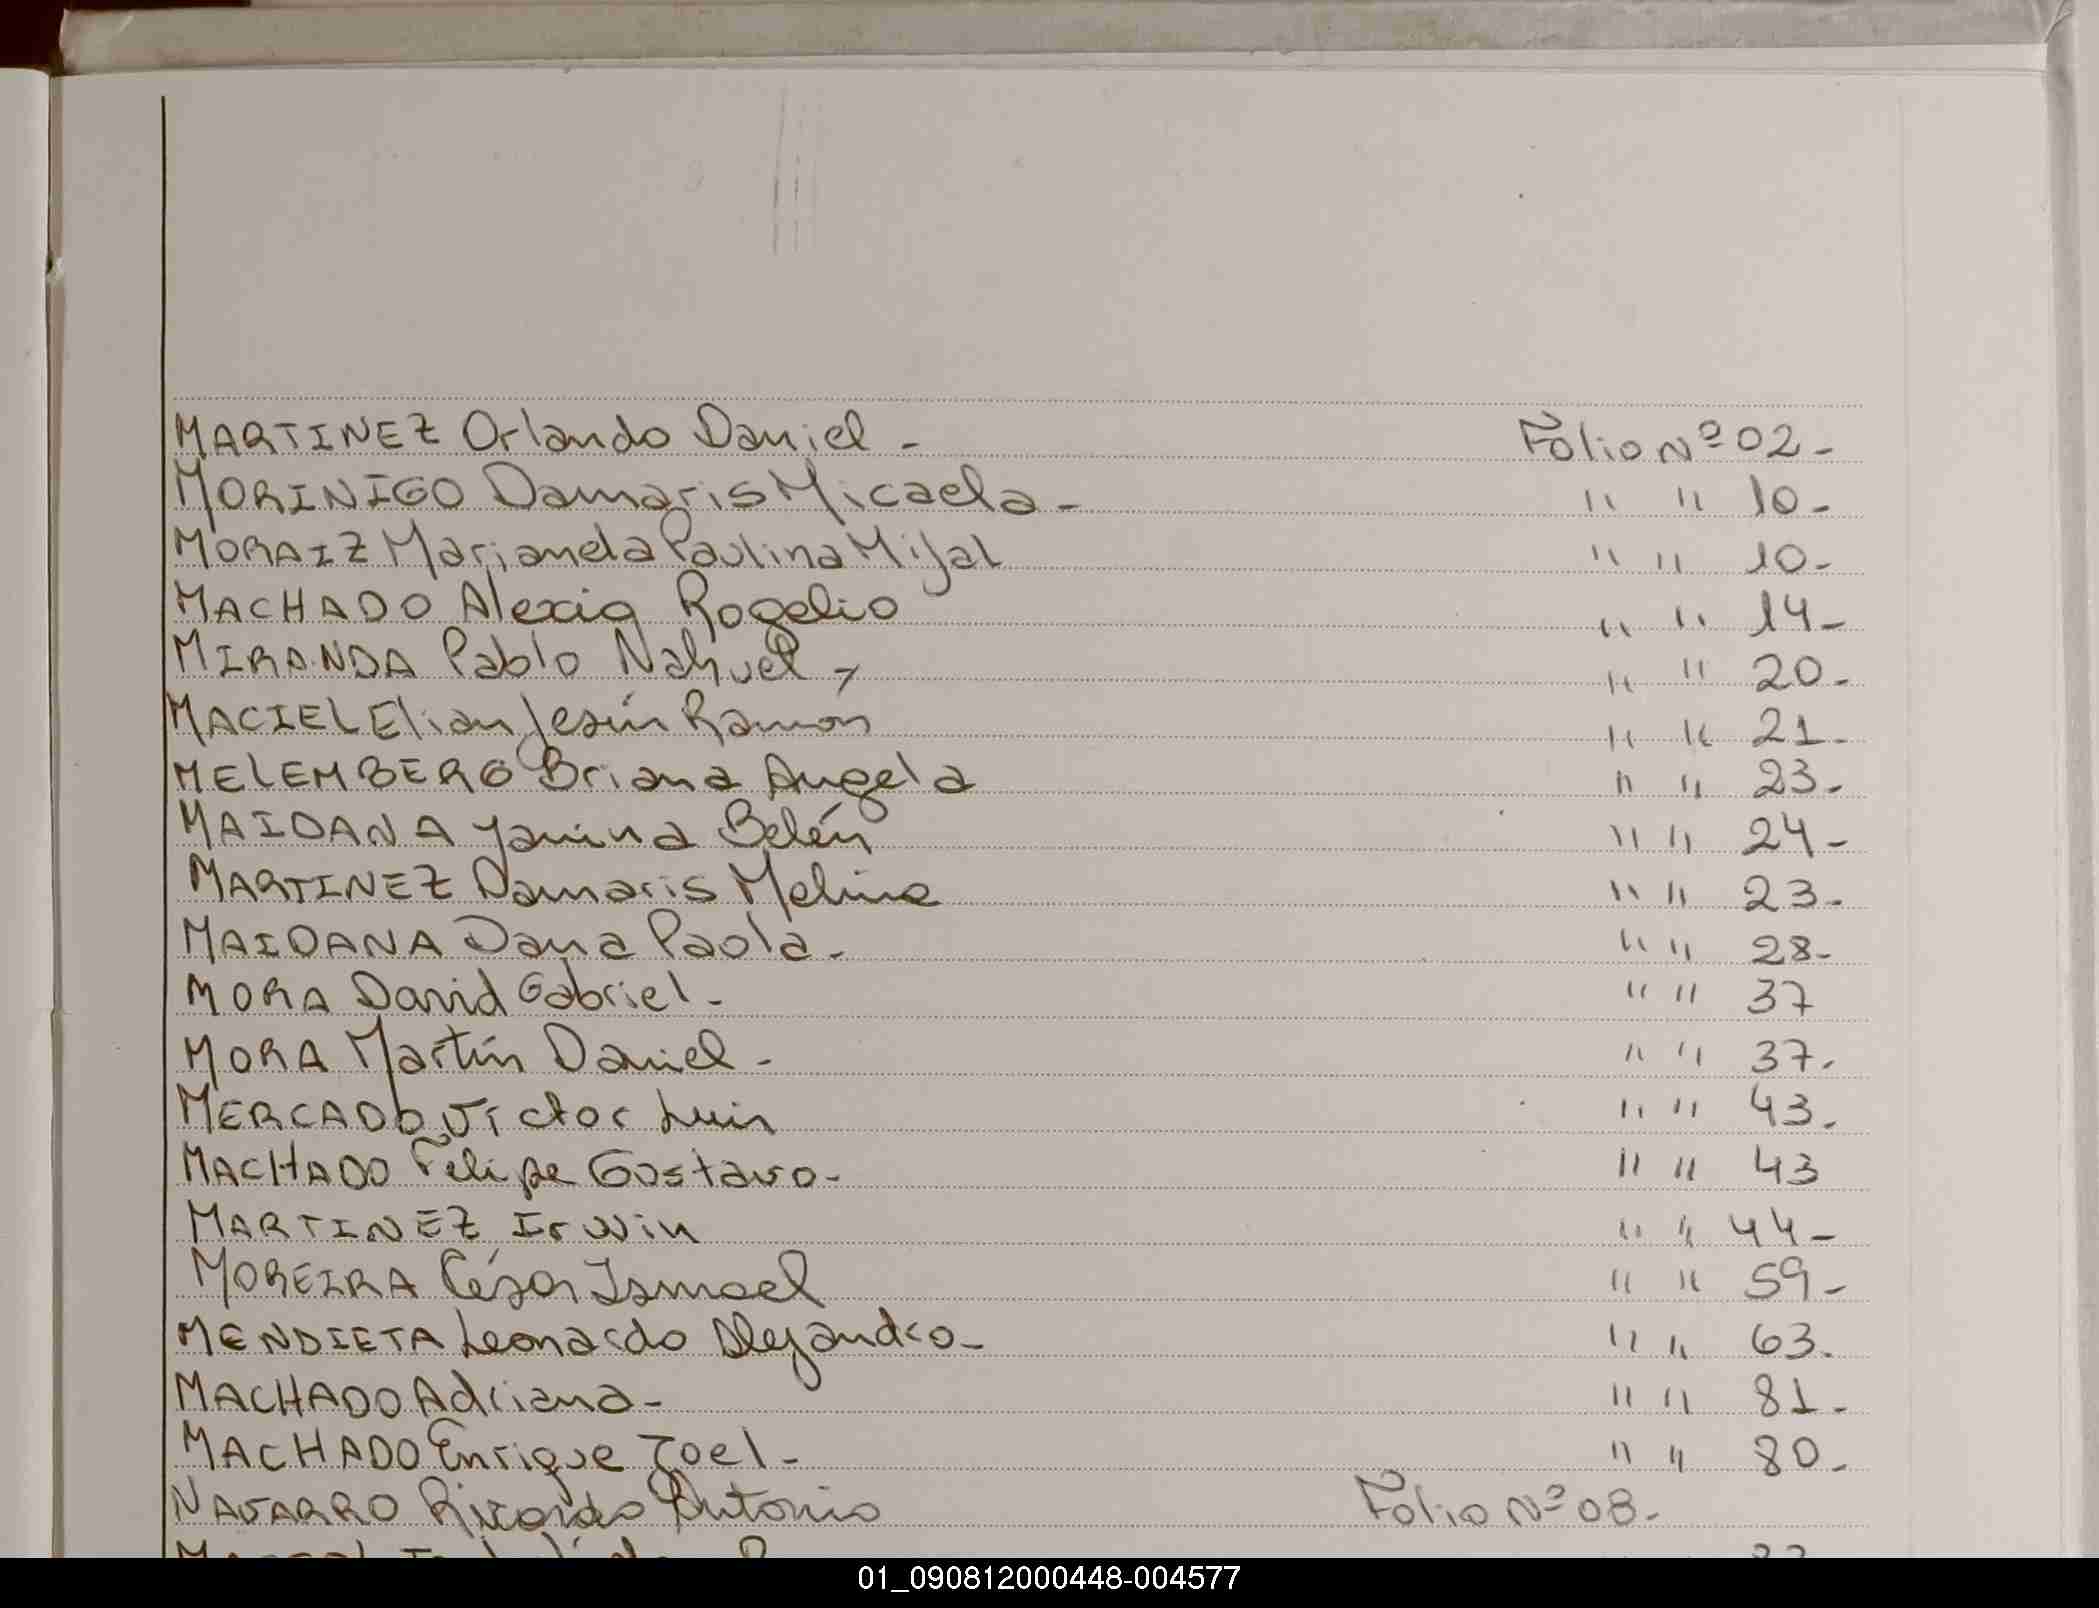 MARTINEZ Orlando Daniel - Folio Nº 02-
MORINIGO Damaris Micaela - " " 10-
MORAIZ Marianela Paulina Mijal " " 10-
MACHADO Alexis Rogelio " " 14-
MIRANDA Pablo Nahuel - " " 20-
MACIEL Elian Jesús Ramón " " 21-
MELEMBERG Briana Angela " " 23-
MAIDANA Yanina Belén " " 24-
MARTINEZ Damaris Melina " " 23-
MAIDANA Dana Paola - " " 28-
MORA David Gabriel - " " 37
MORA Martín Daniel - " " 37-
MERCADO Víctor Luis " " 43-
MACHADO Felipe Gustavo - " " 43
MARTINEZ Irwin " " 44-
MOREIRA César Ismael " " 59-
MENDIETA Leonardo Alejandro - " " 63-
MACHADO Adriana - " " 81-
MACHADO Enrique Joel - " " 80-
NAVARRO Ricardo Antonio Folio Nº 08-
01_090812000448-004577